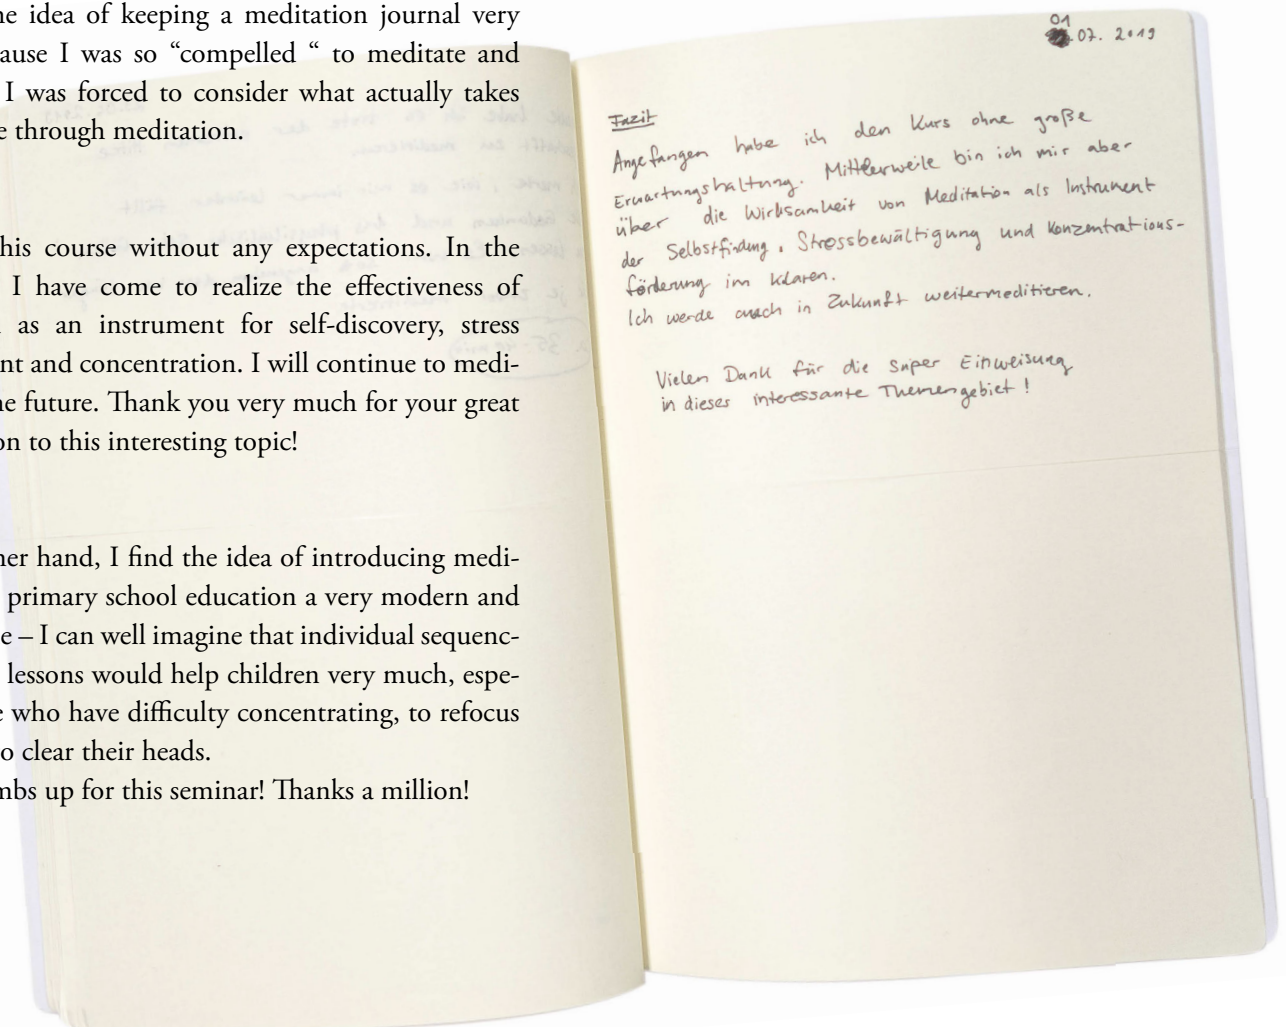 ne idea of keeping a meditation journal very
ause I was so “compelled “ to meditate and
I was forced to consider what actually takes
e through meditation.
his course without any expectations. In the
I have come to realize the effectiveness of
as an instrument for self-discovery, stress
nt and concentration. I will continue to medi-
ne future. Thank you very much for your great
on to this interesting topic!
her hand, I find the idea of introducing medi-
primary school education a very modern and
e – I can well imagine that individual sequenc-
lessons would help children very much, espe-
e who have difficulty concentrating, to refocus
o clear their heads.
mbs up for this seminar! Thanks a million!
01
.07. 2019
Fazit
Angefangen habe ich den Kurs ohne große
Erwartungshaltung. Mittlerweile bin ich mir aber
über die Wirksamkeit von Meditation als Instrument
der Selbstfindung, Stressbewältigung und Konzentrations-
förderung im Klaren.
Ich werde auch in Zukunft weitermeditieren.
Vielen Dank für die super Einweisung
in dieses interessante Themengebiet!